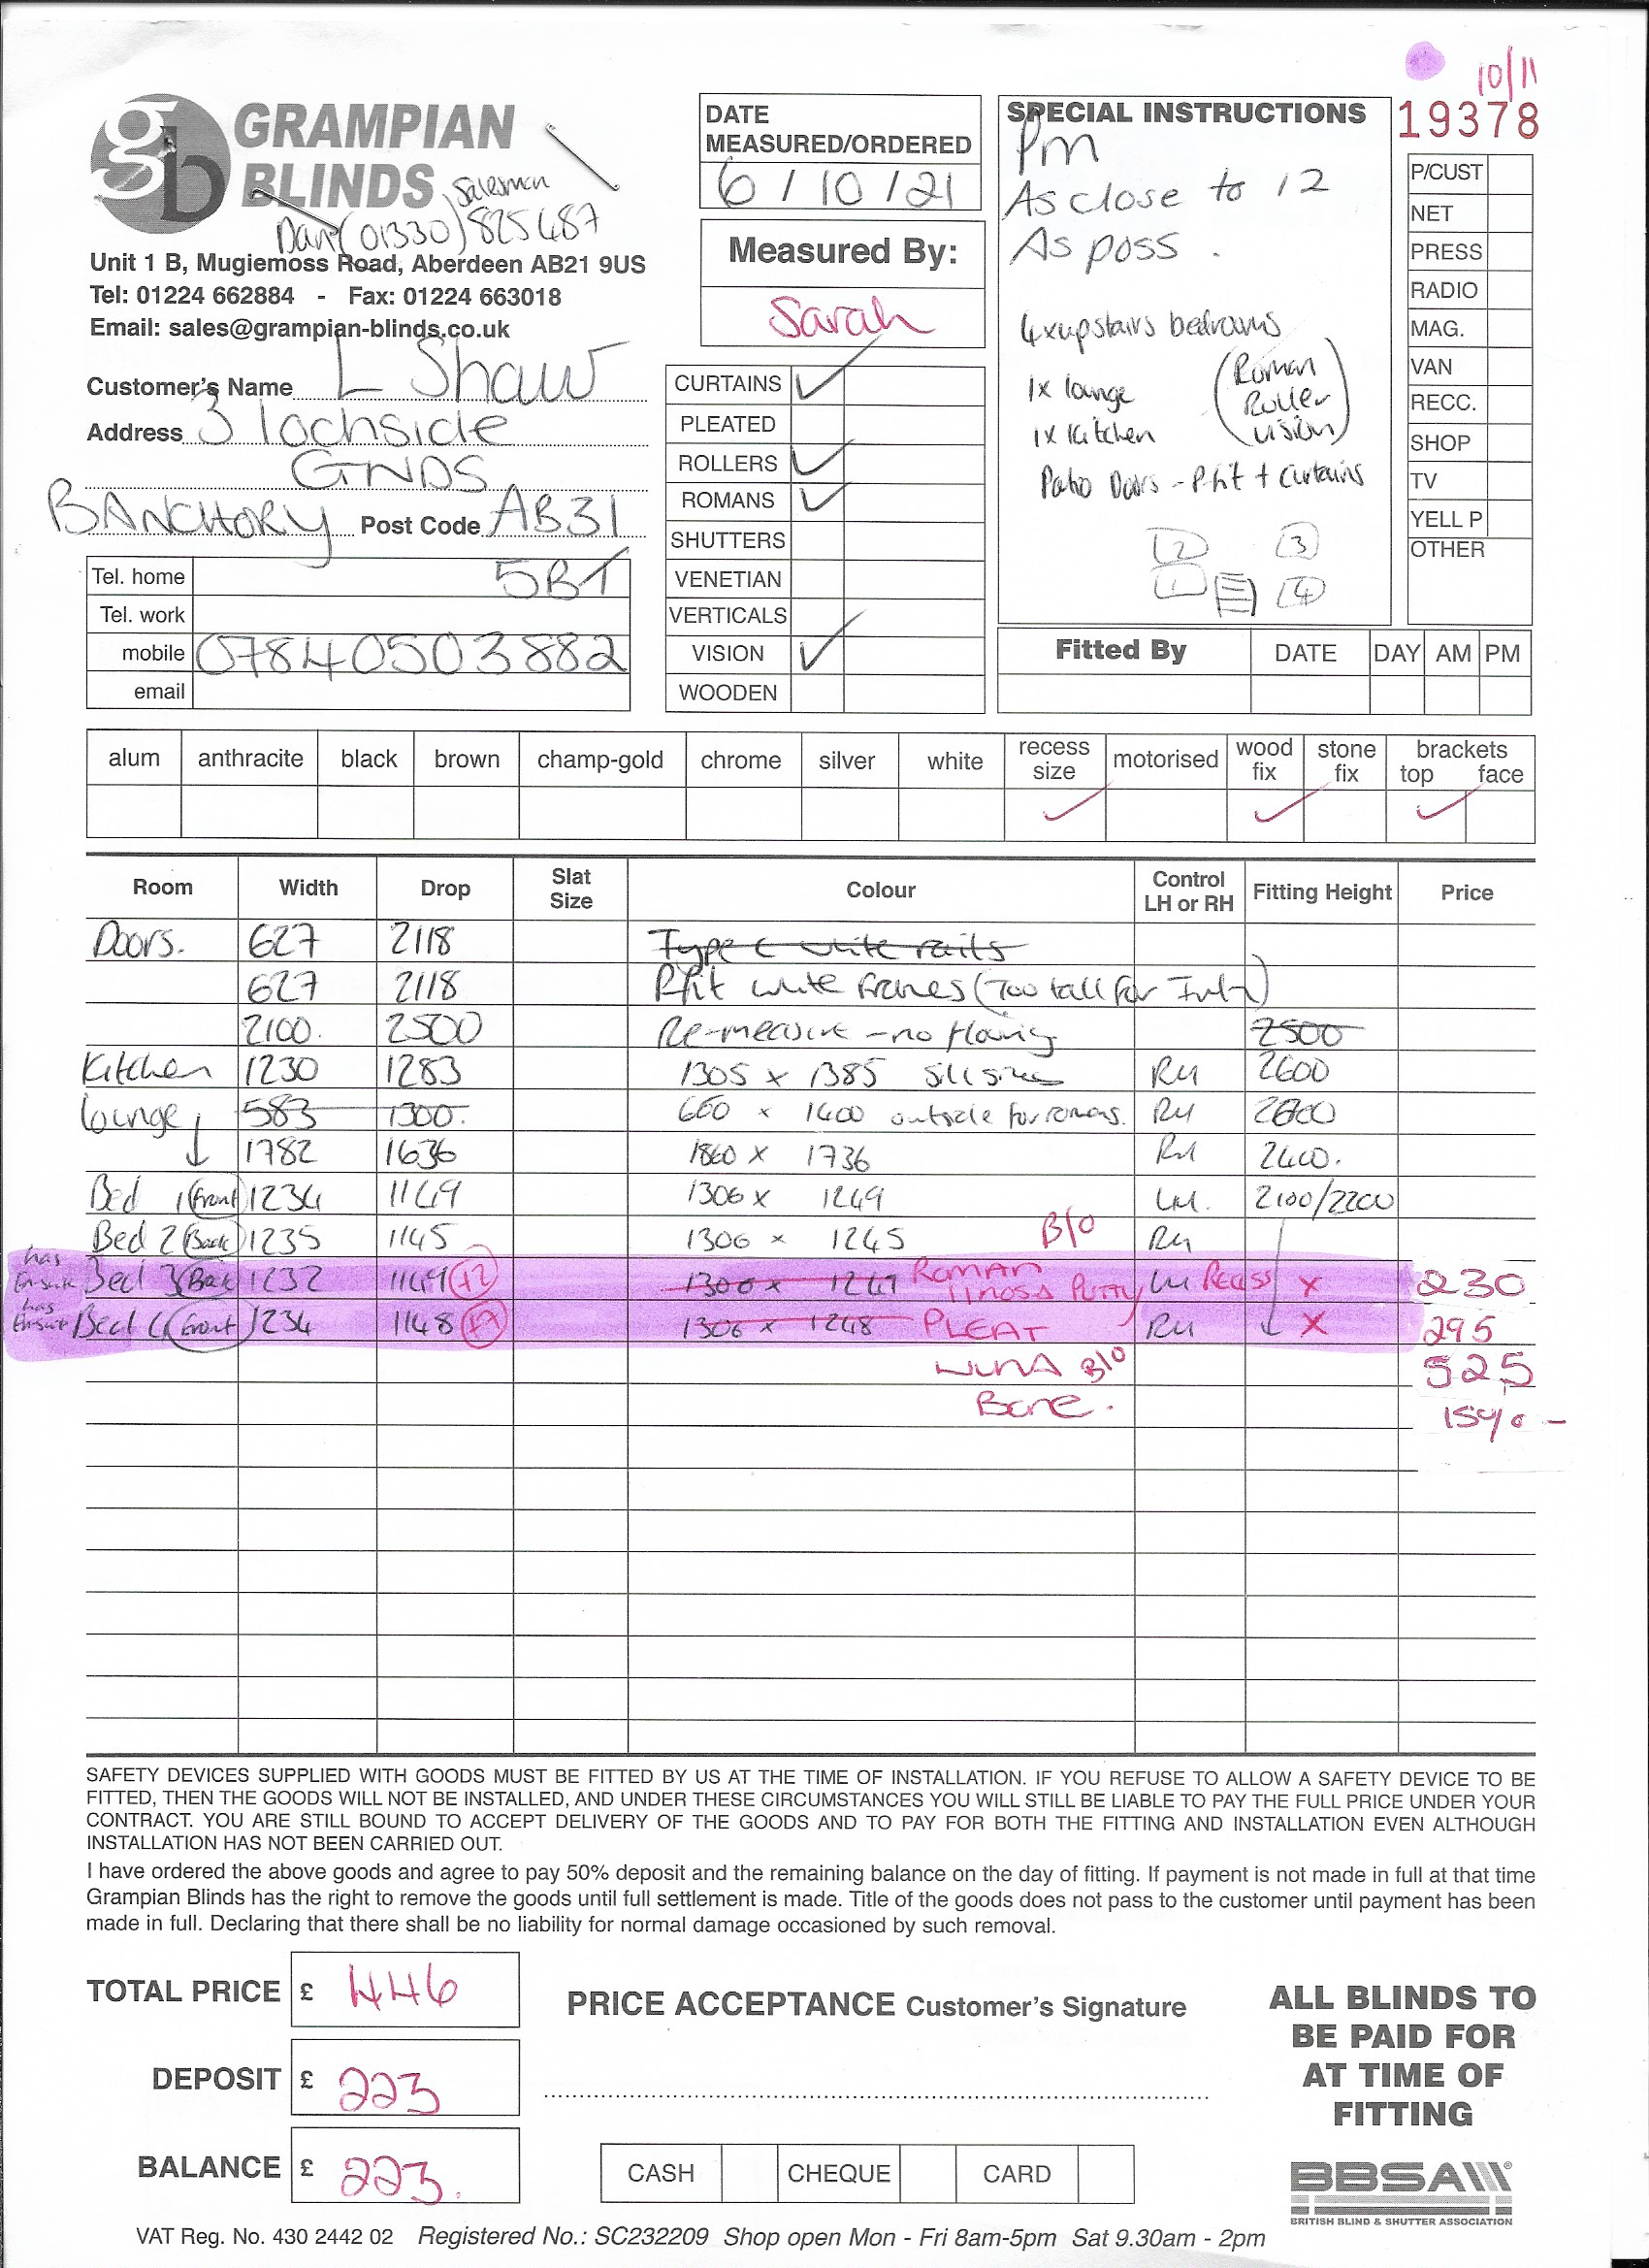 10/11
GRAMPIAN
BLINDS
Salesman
Dan (01330) 825487
Unit 1 B, Mugiemoss Road, Aberdeen AB21 9US
Tel: 01224 662884 - Fax: 01224 663018
Email: sales@grampian-blinds.co.uk
Customer's Name L Shaw
Address 3 lochside
GNDS
BANCHORY Post Code AB31
Tel. home 5BT
Tel. work
mobile 07840503882
email
DATE
MEASURED/ORDERED
6 / 10 / 21
Measured By:
Sarah
CURTAINS ✓
PLEATED
ROLLERS ✓
ROMANS ✓
SHUTTERS
VENETIAN
VERTICALS
VISION ✓
WOODEN
SPECIAL INSTRUCTIONS
Pm
As close to 12
As poss.
4x upstairs bedrooms
1x lounge
1x Kitchen
(Roman
Roller
vision)
Patio Doors - Pfit + Curtains
2 3
1 4
19378
P/CUST
NET
PRESS
RADIO
MAG.
VAN
RECC.
SHOP
TV
YELL P
OTHER
Fitted By DATE DAY AM PM
alum anthracite black brown champ-gold chrome silver white recess size motorised wood fix stone fix brackets top face
✓ ✓ ✓
Room Width Drop Slat Size Colour Control LH or RH Fitting Height Price
Doors. 627 2118 Type C white rails
627 2118 Pfit white frames (Too tall for
2100. 2500 Re-measure - no flooring 2500
Kitchen 1230 1283 1305 x 1385 sill sizes RH 2600
Lounge 583 1300. 660 x 1400 outside for romans. RH
↓ 1782 1636 1860 x 1736 RH 2400.
Bed 1 (Front) 1234 1149 1306 x 1249 LH. 2100/2200
Bed 2 (Back) 1235 1145 1306 x 1245 B/O RH
has Ensuite Bed 3 (Back) 1232 1149 +2 1300 x 1249 ROMAN PUTTY LH RECESS x 230
has Ensuite Bed 4 (Front) 1234 1148 1306 x 1248 PLEAT RH x 295
B/O 525
Bone. 15% -
SAFETY DEVICES SUPPLIED WITH GOODS MUST BE FITTED BY US AT THE TIME OF INSTALLATION. IF YOU REFUSE TO ALLOW A SAFETY DEVICE TO BE
FITTED, THEN THE GOODS WILL NOT BE INSTALLED, AND UNDER THESE CIRCUMSTANCES YOU WILL STILL BE LIABLE TO PAY THE FULL PRICE UNDER YOUR
CONTRACT. YOU ARE STILL BOUND TO ACCEPT DELIVERY OF THE GOODS AND TO PAY FOR BOTH THE FITTING AND INSTALLATION EVEN ALTHOUGH
INSTALLATION HAS NOT BEEN CARRIED OUT.
I have ordered the above goods and agree to pay 50% deposit and the remaining balance on the day of fitting. If payment is not made in full at that time
Grampian Blinds has the right to remove the goods until full settlement is made. Title of the goods does not pass to the customer until payment has been
made in full. Declaring that there shall be no liability for normal damage occasioned by such removal.
TOTAL PRICE £ 446
DEPOSIT £ 223
BALANCE £ 223.
PRICE ACCEPTANCE Customer's Signature
CASH CHEQUE CARD
ALL BLINDS TO
BE PAID FOR
AT TIME OF
FITTING
BBSA
BRITISH BLIND & SHUTTER ASSOCIATION
VAT Reg. No. 430 2442 02 Registered No.: SC232209 Shop open Mon - Fri 8am-5pm Sat 9.30am - 2pm